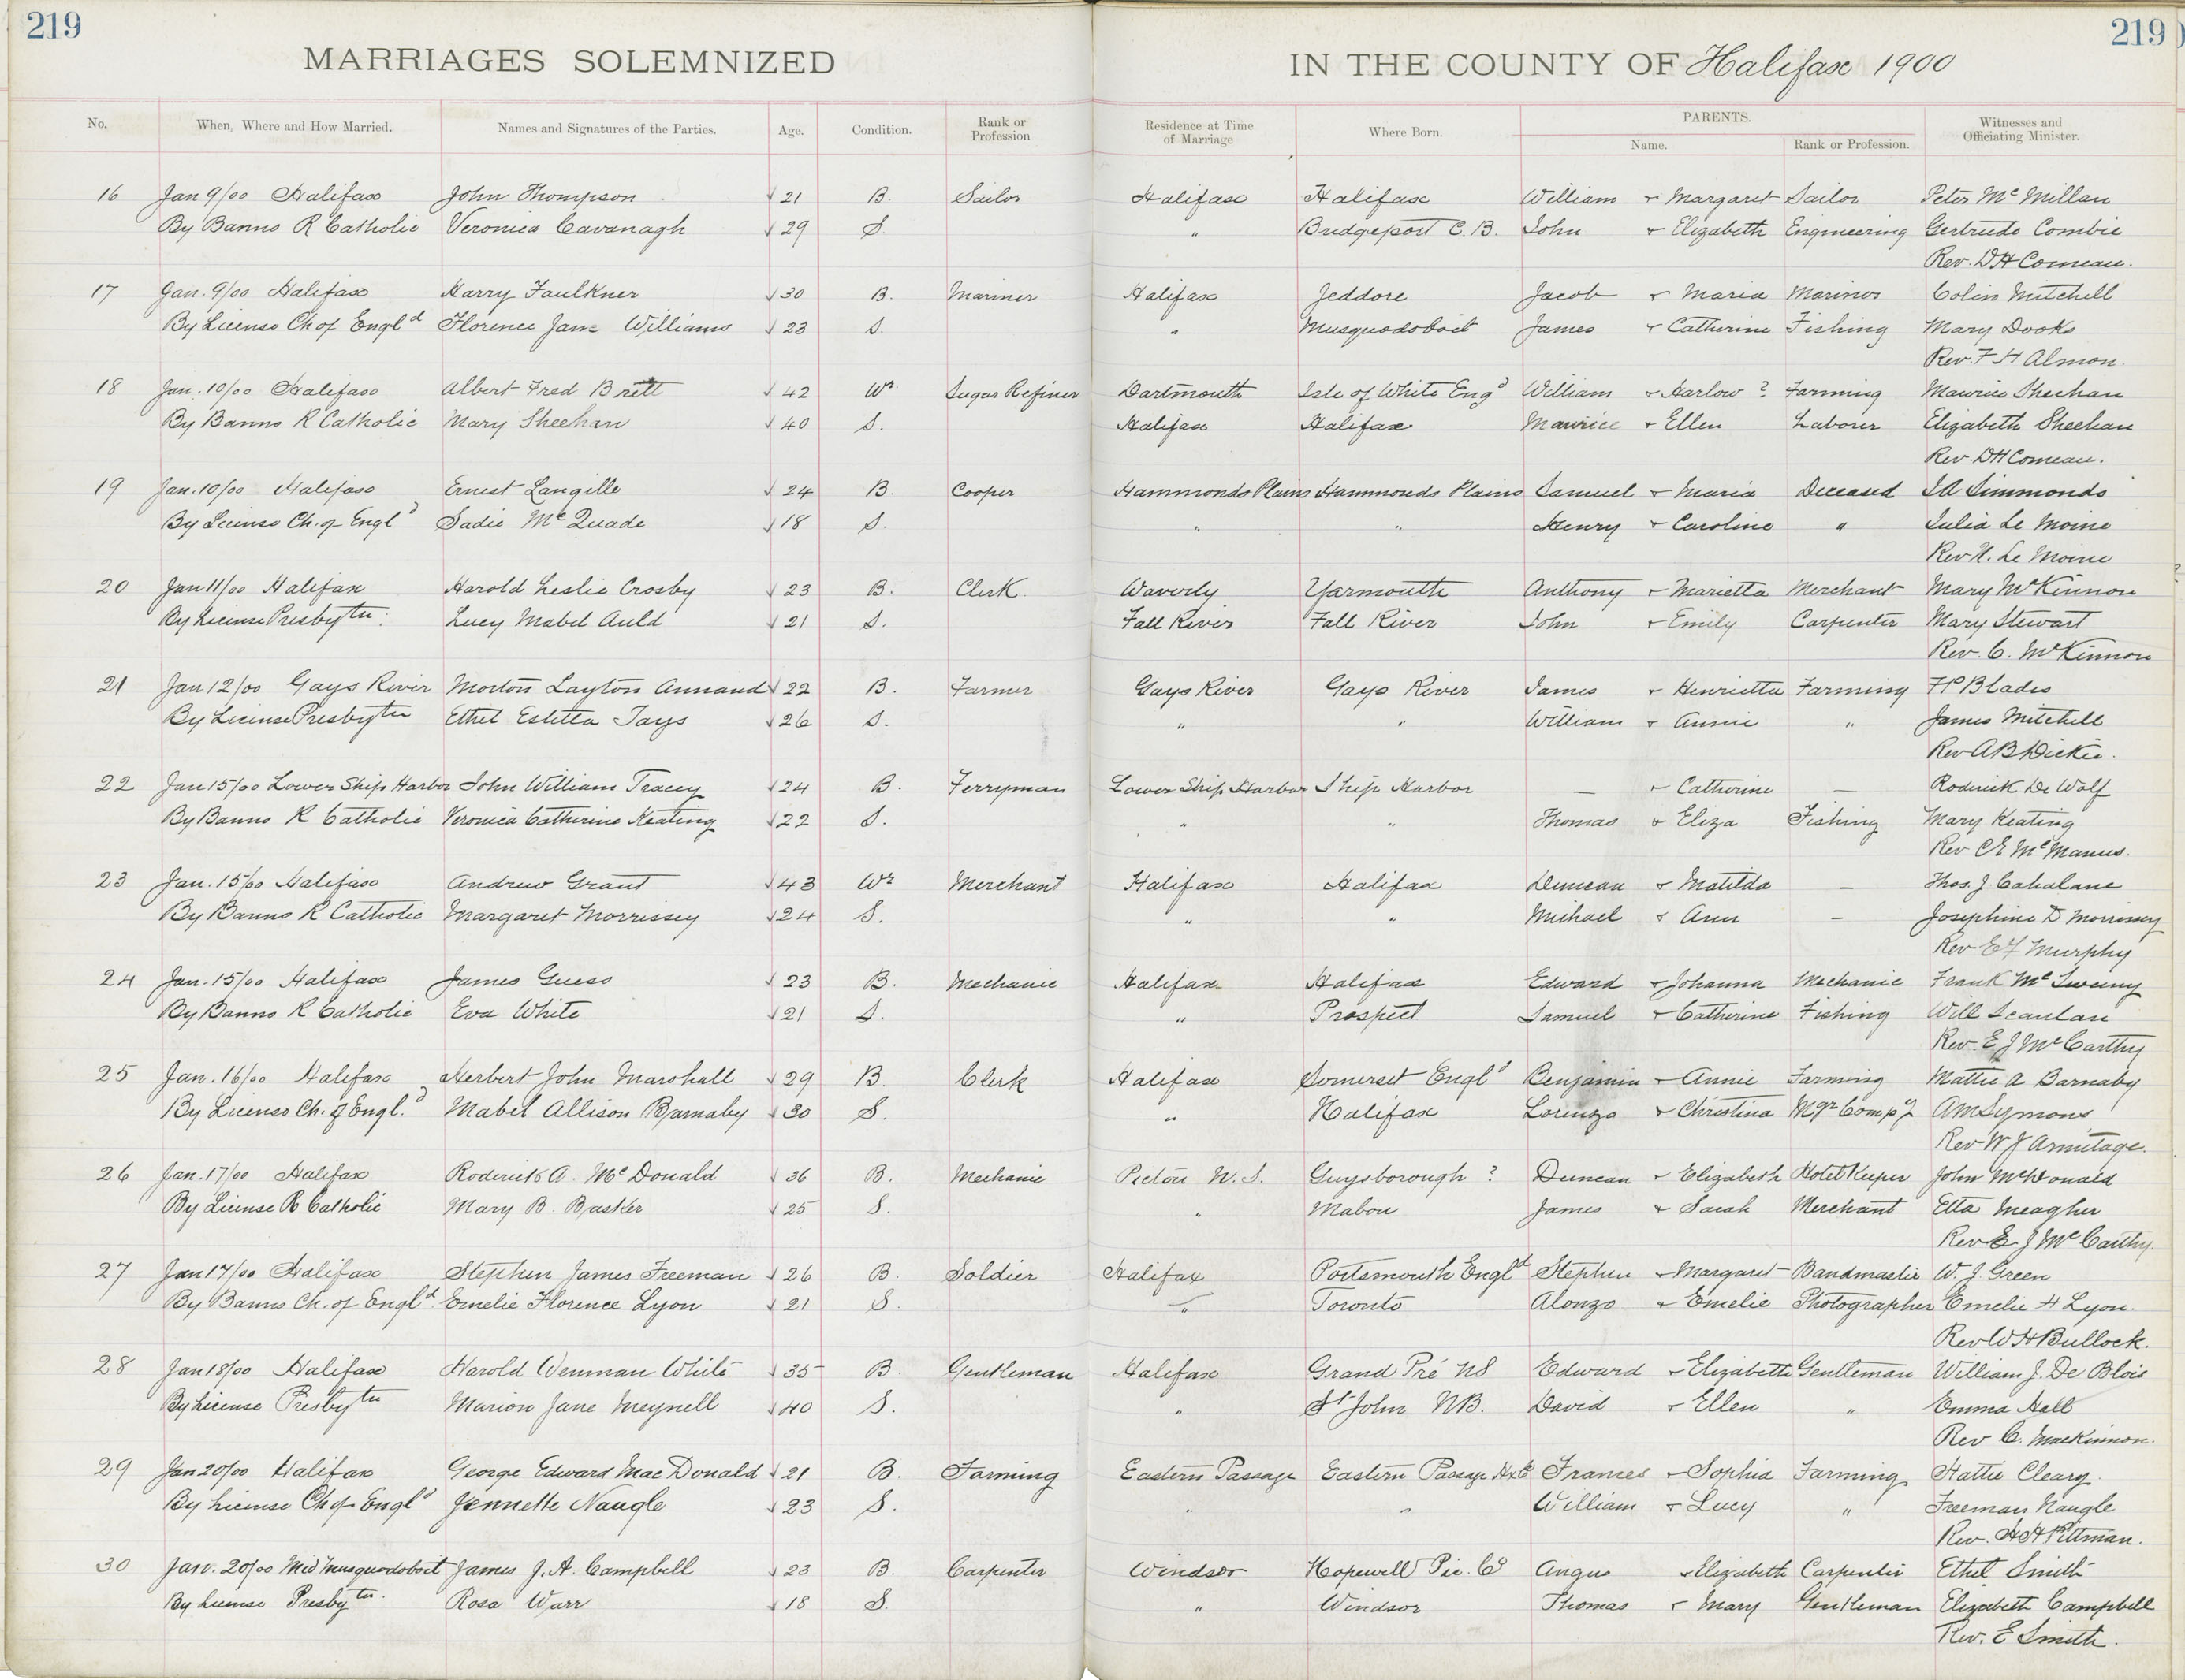 219 219
MARRIAGES SOLEMNIZED IN THE COUNTY OF Halifax 1900
No. When, Where and How Married. Names and Signatures of the Parties. Age. Condition. Rank or Profession Residence at Time of Marriage Where Born. PARENTS. Name. Rank or Profession. Witnesses and Officiating Minister.
16 Jan 9/00 Halifax John Thompson 21 B. Sailor Halifax Halifax William + Margaret Sailor Peter Mc Millan
By Banns R Catholic Veronica Cavanagh 29 S. " Bridgeport C.B. John + Elizabeth Engineering Gertrude Combie
Rev. DH Comeau.
17 Jan. 9/00 Halifax Harry Faulkner 30 B. Mariner Halifax Jeddore Jacob + Maria Mariner Colin Mitchell
By License Ch of Engld Florence Jane Williams 23 S. " Musquodoboit James + Catherine Fishing Mary Dooks
Rev. F H Almon.
18 Jan. 10/00 Halifax Albert Fred Brett 42 Wr. Sugar Refiner Dartmouth Isle of White Engd William + Harlow ? Farming Maurice Sheehan
By Banns R Catholic Mary Sheehan 40 S. Halifax Halifax Maurice + Ellen Labourer Elizabeth Sheehan
Rev. DH Comeau.
19 Jan. 10/00 Halifax Ernest Langille 24 B. Cooper Hammonds Plains Hammonds Plains Samuel + Maria Deceased Simmonds
By License Ch. of Engld Sadie Mc Quade 18 S. " " Henry + Caroline " Julia Le Moine
Rev. Le Moine
20 Jan 11/00 Halifax Harold Leslie Crosby 23 B. Clerk Waverly Yarmouth Anthony + Marietta Merchant Mary McKinnon
By License Presbytn. Lucy Mabel Auld 21 S. Fall River Fall River John + Emily Carpenter Mary Stewart
Rev. C. McKinnon
21 Jan 12/00 Gays River Morton Layton Annand 22 B. Farmer Gays River Gays River James + Henrietta Farming Blades
By License Presbytn Ethel Estella Tays 26 S. " " William + Annie " James Mitchell
Rev A B Dickie.
22 Jan 15/00 Lower Ship Harbor John William Tracey 24 B. Ferryman Lower Ship Harbor Ship Harbor — + Catherine — Roderick De Wolf
By Banns R Catholic Veronica Catherine Keating 22 S. " " Thomas + Eliza Fishing Mary Keating
Rev C E McManus.
23 Jan. 15/00 Halifax Andrew Grant 43 Wr Merchant Halifax Halifax Duncan + Matilda — Thos. J. Cahalane
By Banns R Catholic Margaret Morrissey 24 S. " " Michael + Ann — Josephine D Morrissey
Rev E F Murphy
24 Jan. 15/00 Halifax James Guess 23 B. Mechanic Halifax Halifax Edward + Johanna Mechanic Frank Mc Sweeny
By Banns R Catholic Eva White 21 S. " Prospect Samuel + Catherine Fishing Will Scanlan
Rev. E J McCarthy
25 Jan. 16/00 Halifax Herbert John Marshall 29 B. Clerk Halifax Somerset Engld Benjamin + Annie Farming Mattie A Barnaby
By License Ch. of Engl.d Mabel Allison Barnaby 30 S. " Halifax Lorenzo + Christina Mgr Compy A M Symons
Rev W J Armitage.
26 Jan. 17/00 Halifax Roderick A. McDonald 36 B. Mechanic Pictou N.S. Guysborough ? Duncan + Elizabeth Hotel Keeper John McDonald
By License R Catholic Mary B. Basker 25 S. " Mabou James + Sarah Merchant Etta Meagher
Rev E J McCarthy.
27 Jan 17/00 Halifax Stephen James Freeman 26 B. Soldier Halifax Portsmouth Engld Stephen + Margaret Bandmaster W. J. Green
By Banns Ch. of Engld. Emelie Florence Lyon 21 S. " Toronto Alonzo + Emelie Photographer Emelie H Lyon.
Rev W H Bullock.
28 Jan 18/00 Halifax Harold Wenman White 35 B. Gentleman Halifax Grand Pré NS Edward + Elizabeth Gentleman William J. De Blois
By License Presbytn Marion Jane Meynell 40 S. " St John NB. David + Ellen " Emma Hall
Rev C. MacKinnon.
29 Jan 20/00 Halifax George Edward MacDonald 21 B. Farming Eastern Passage Eastern Passage Hx Co Frances + Sophia Farming Hattie Cleary.
By License Ch of Engld Jennette Naugle 23 S. " " William + Lucy " Freeman Naugle
Rev. H H Pittman.
30 Jan. 20/00 Mid Musquodoboit James J. A. Campbell 23 B. Carpenter Windsor Hopewell Pic. Co Angus + Elizabeth Carpenter Ethel Smith
By License Presbytn. Rosa Warr 18 S. " Windsor Thomas + Mary Gentleman Elizabeth Campbell
Rev. E Smith.